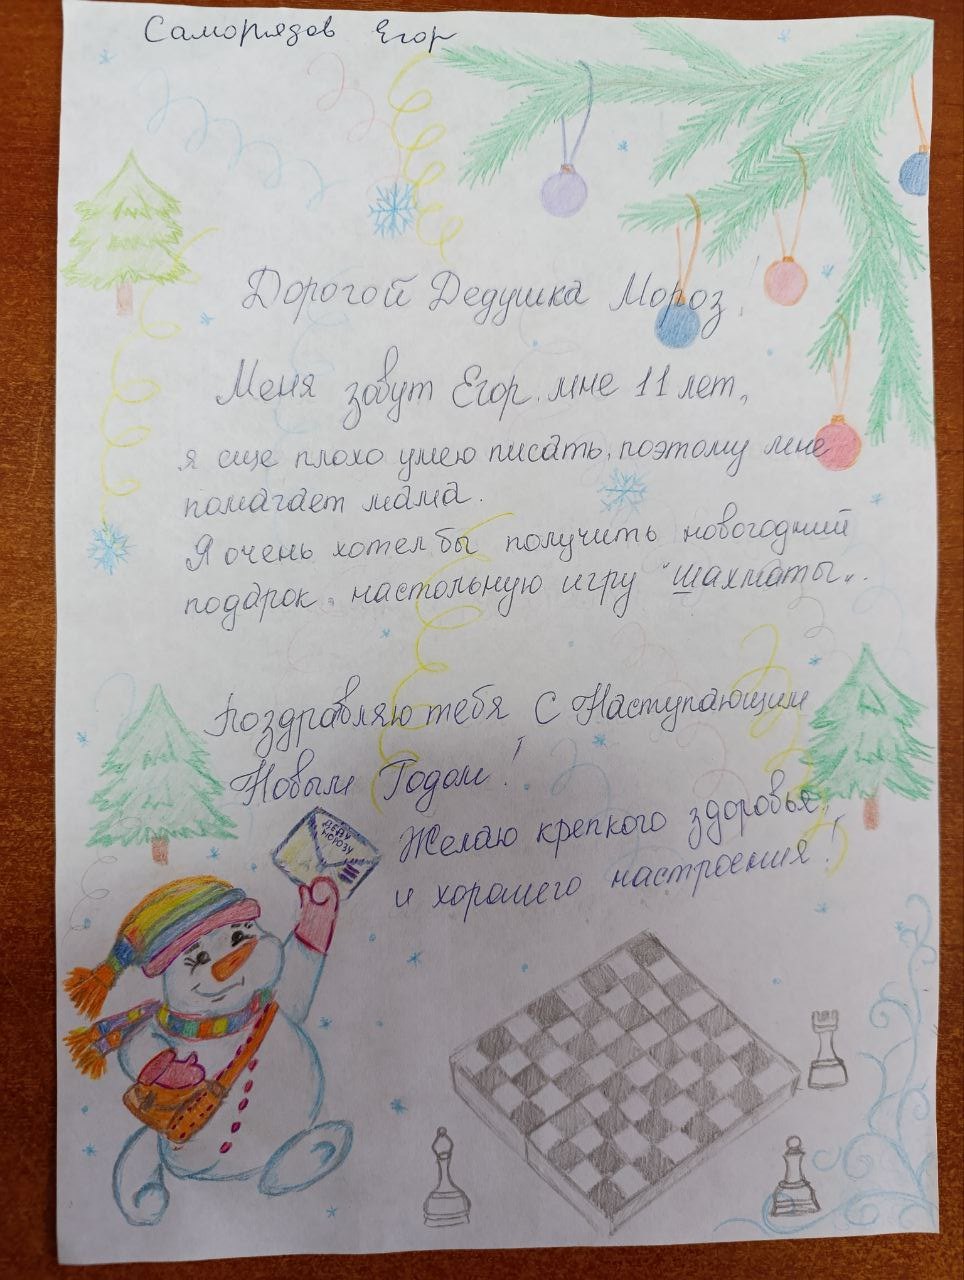 Саморядов Егор
Дорогой Дедушка Мороз!
Меня зовут Егор, мне 11 лет,
я еще плохо умею писать, поэтому мне
помагает мама.
Я очень хотел бы получить новогодний
подарок, настольную игру "Шахматы".
Поздравляю тебя С Наступающим
Новым Годом!
ДЕДУ
МОРОЗУ
Желаю крепкого здоровья,
и хорошего настроения!